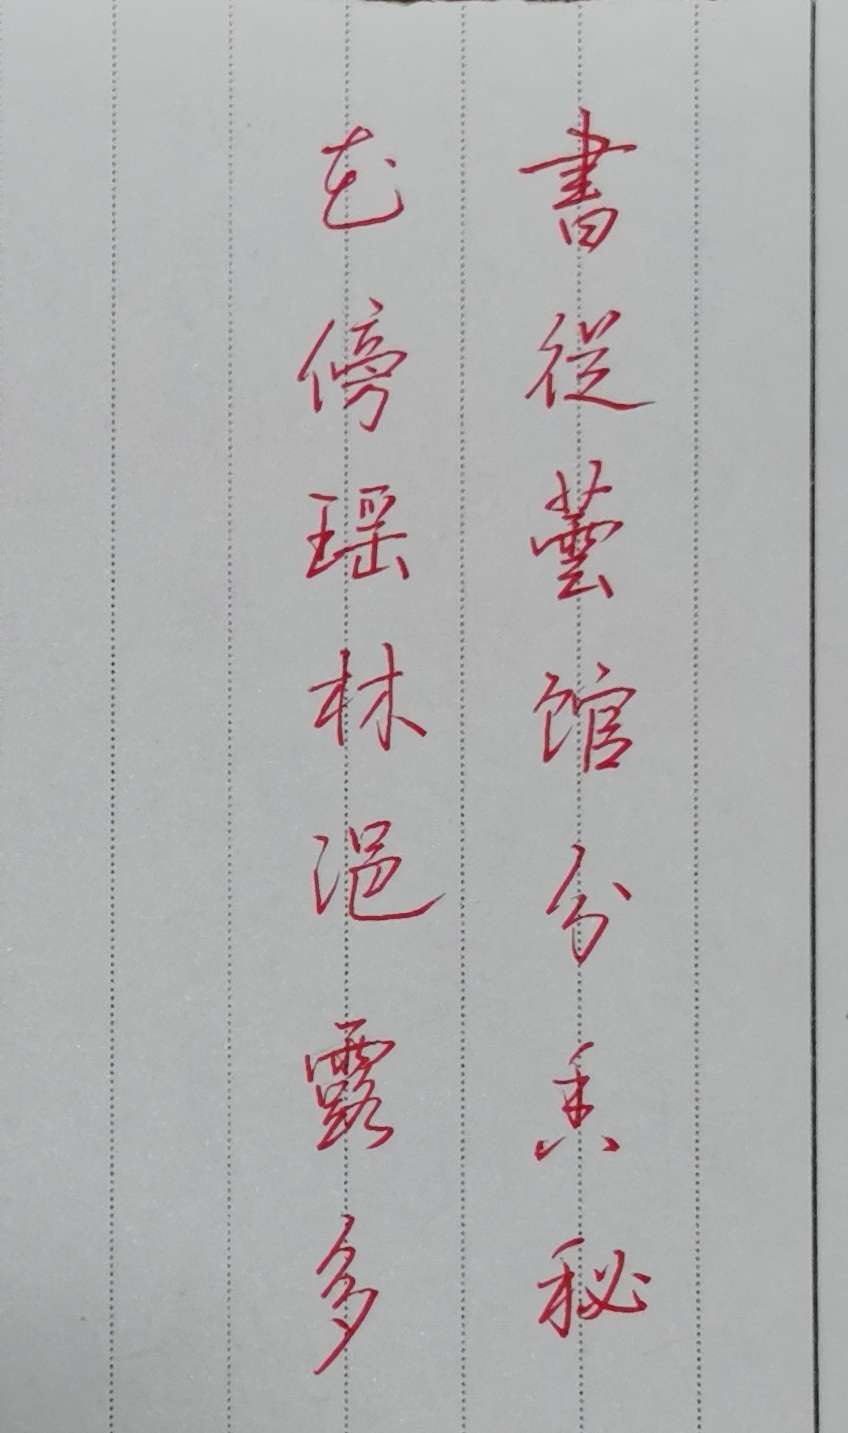 書從蕓馆分香秘
花傍瑶林浥露多